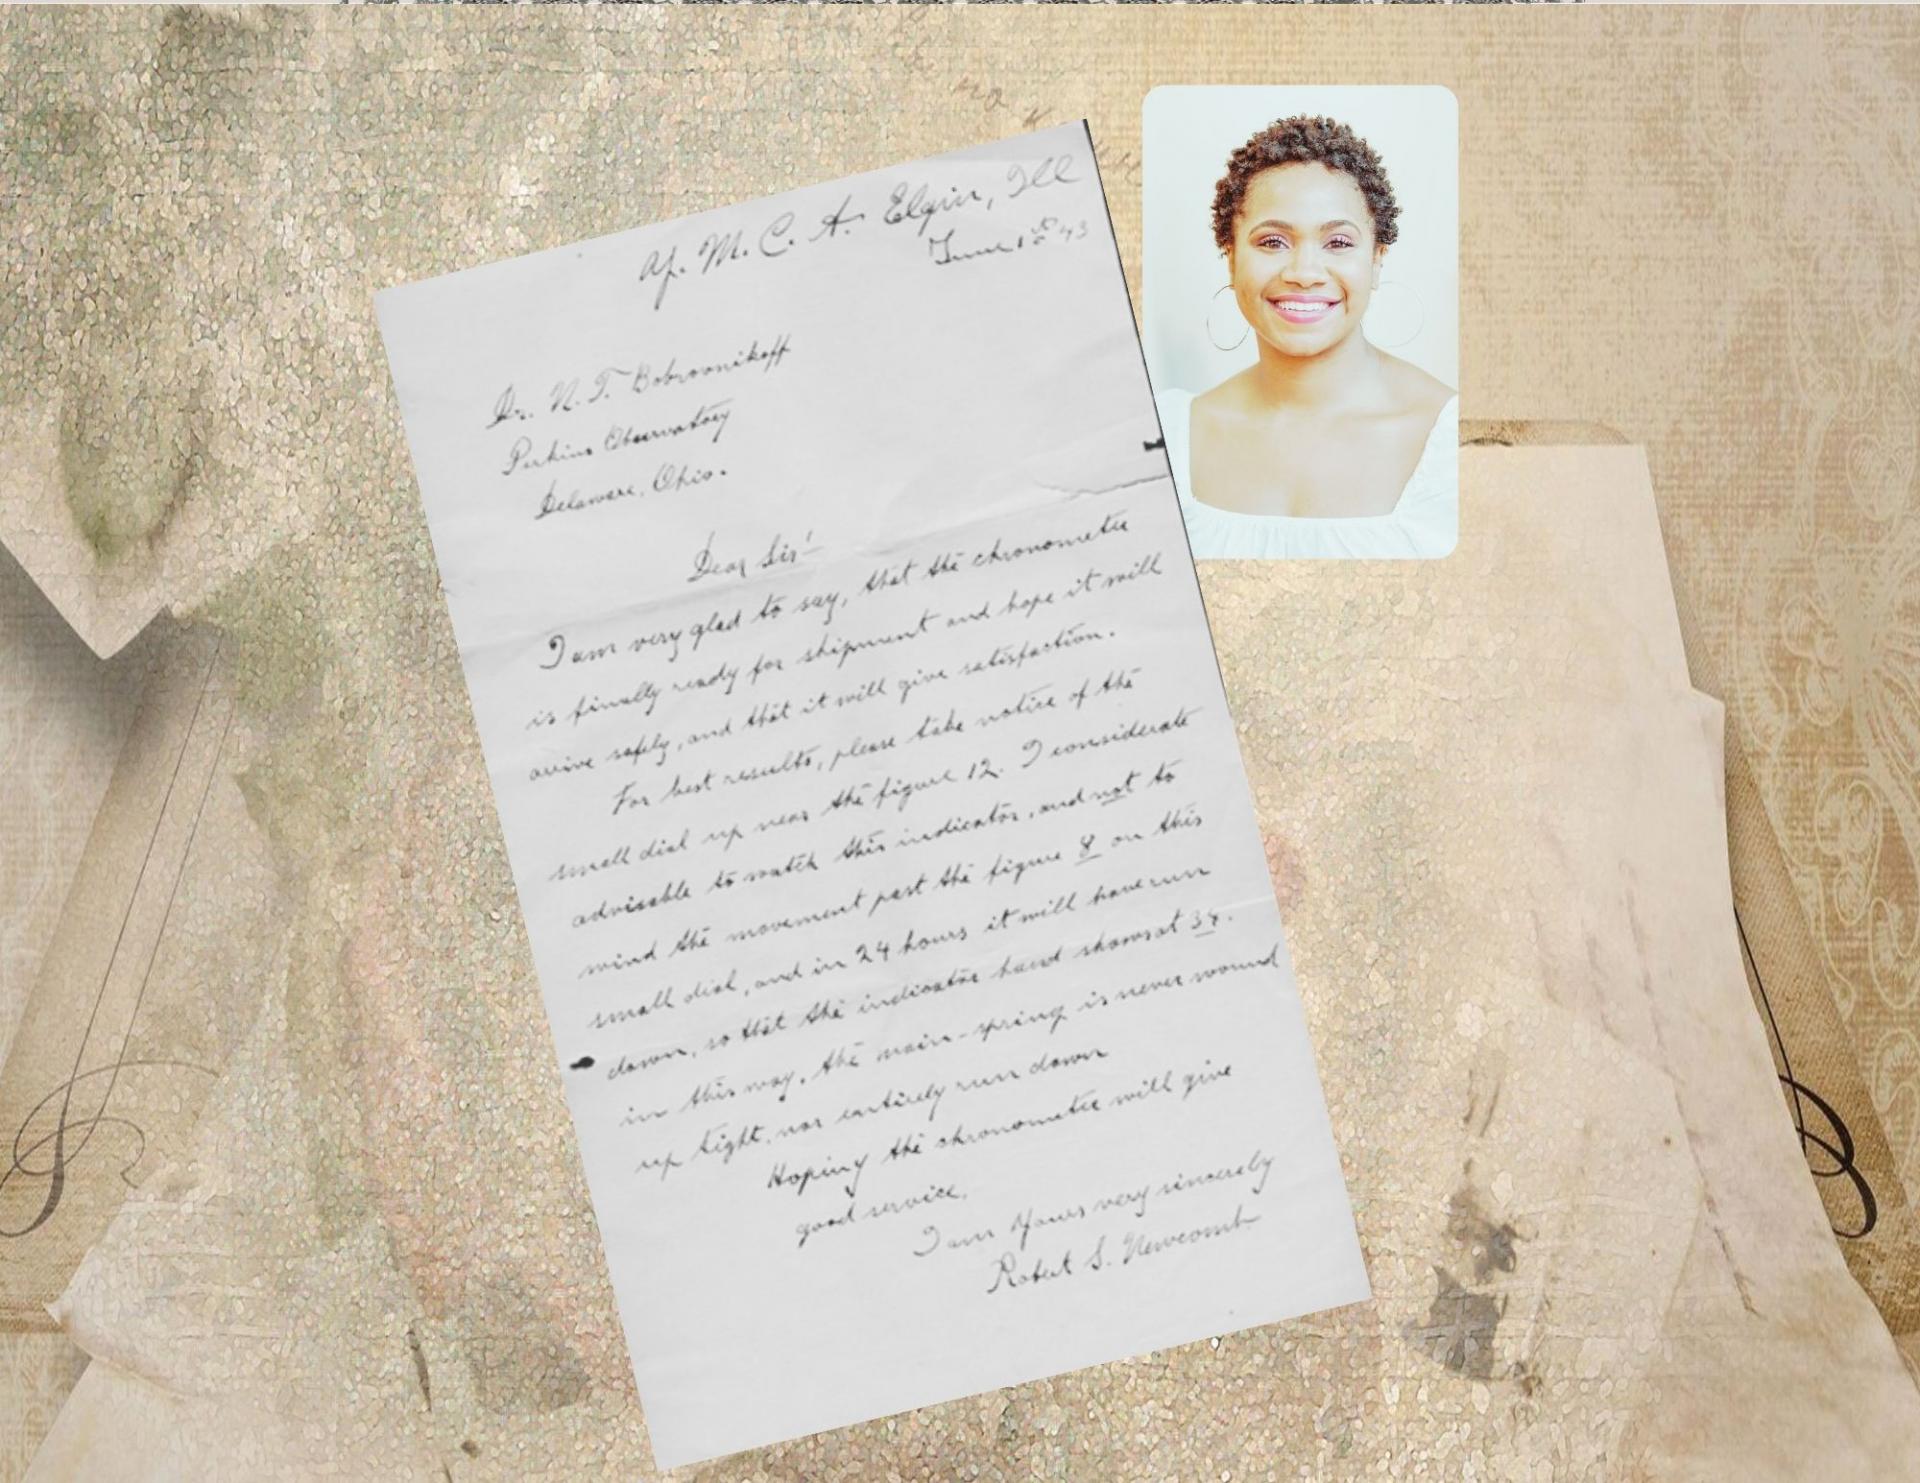 Y. M. C. A. Elgin, Ill
June 1st 43
Dr. N. T. Bobrovnikoff
Perkins Observatory
Delaware, Ohio.
Dear Sir!
I am very glad to say, that the chronometer
is finally ready for shipment and hope it will
arive safely, and that it will give satisfaction.
For best results, please take notice of the
small dial up near the figure 12. I considerate
advisable to watch this indicator, and not to
wind the movement past the figure 8 on this
small dial, and in 24 hours it will have run
down, so that the indicator hand shows at
in this way, the main-spring is never wound
up tight, nor entirely run down
Hoping the chronometer will give
good service.
I am Yours very sincerely
Robert S. Newcomb